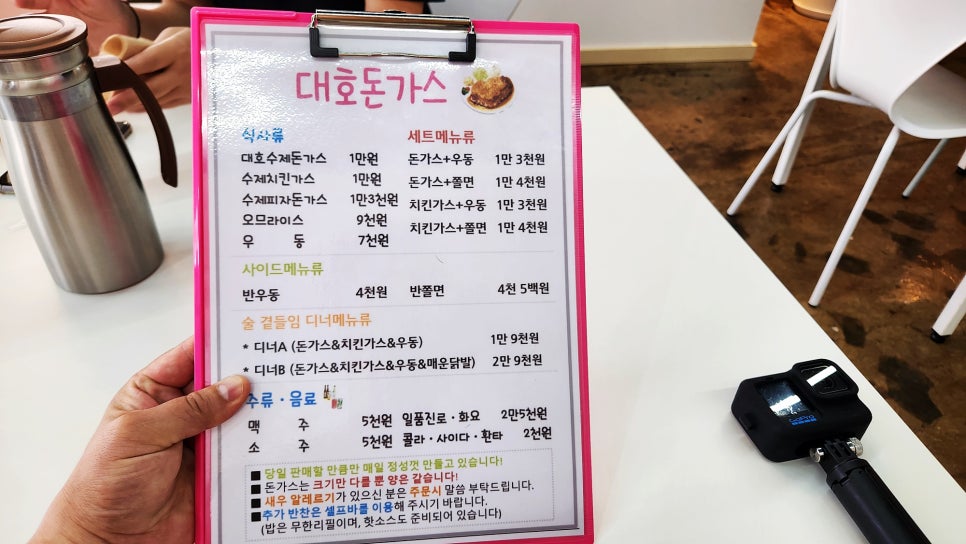 대호돈가스
식사류
대호수제돈가스 1만원
수제치킨가스 1만원
수제피자돈가스 1만3천원
오므라이스 9천원
우 동 7천원
세트메뉴류
돈가스+우동 1만 3천원
돈가스+쫄면 1만 4천원
치킨가스+우동 1만 3천원
치킨가스+쫄면 1만 4천원
사이드메뉴류
반우동 4천원 반쫄면 4천 5백원
술 곁들임 디너메뉴류
* 디너A (돈가스&치킨가스&우동) 1만 9천원
* 디너B (돈가스&치킨가스&우동&매운닭발) 2만 9천원
주류 · 음료
맥 주 5천원 일품진로 · 화요 2만5천원
소 주 5천원 콜라 · 사이다 · 환타 2천원
■ 당일 판매할 만큼만 매일 정성껏 만들고 있습니다!
■ 돈가스는 크기만 다를 뿐 양은 같습니다!
■ 새우 알레르기가 있으신 분은 주문시 말씀 부탁드립니다.
■ 추가 반찬은 셀프바를 이용해 주시기 바랍니다.
(밥은 무한리필이며, 핫소스도 준비되어 있습니다)
GoPro